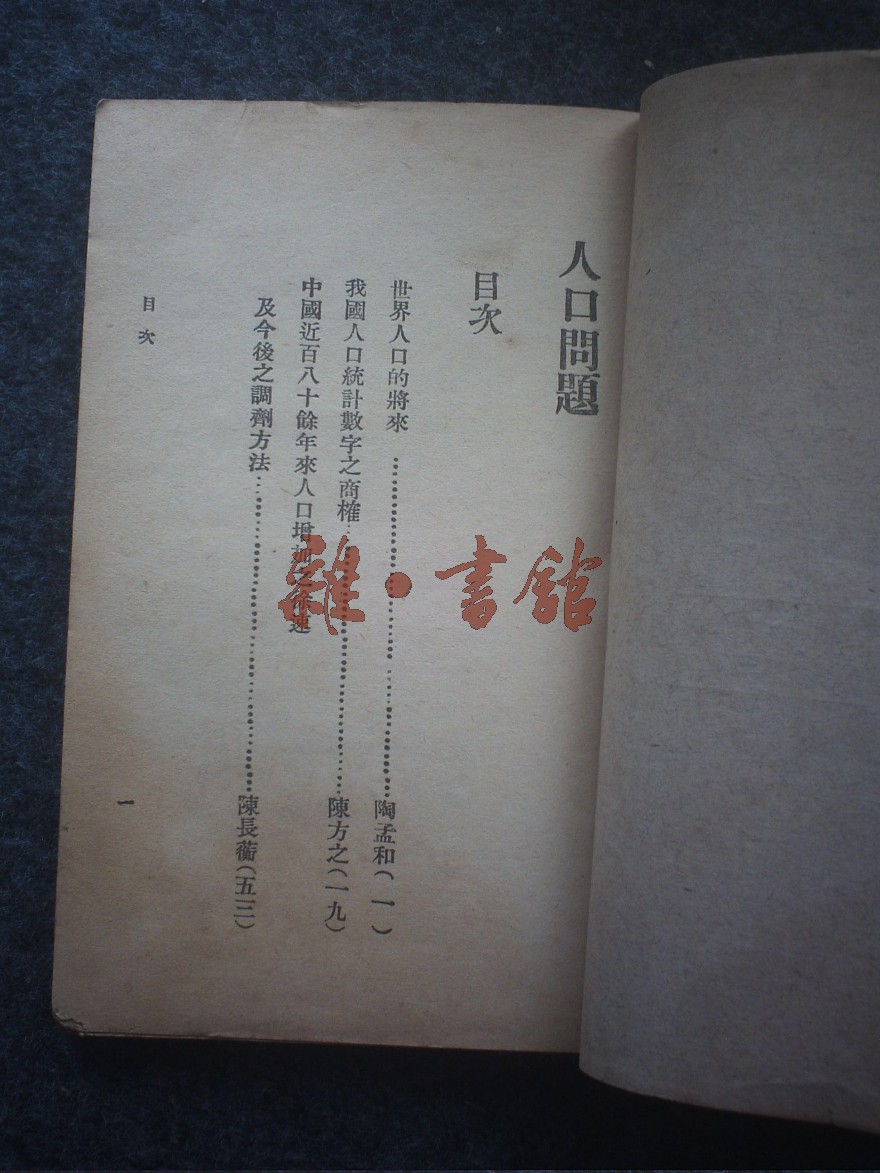 人口問題
目次
世界人口的將來…………陶孟和(一)
我國人口統計數字之商榷…………陳方之(一九)
中國近百八十餘年來人口增加之徐速
及今後之調劑方法…………陳長蘅(五三)
目次
一
雜·書館